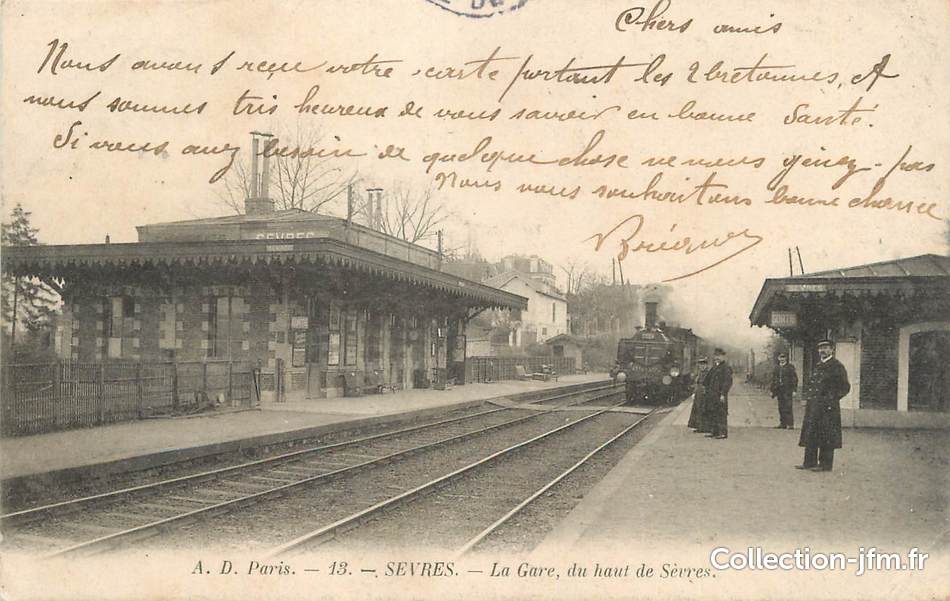 Chers amis
Nous avons reçu votre carte portant les 2 bretonnes, et
nous sommes très heureux de vous savoir en bonne santé.
Si vous avez besoin de quelque chose ne vous gênez pas
Nous vous souhaitons bonne chance
SEVRES
A. D. Paris. - 13. - SEVRES. - La Gare, du haut de Sèvres.
Collection-jfm.fr